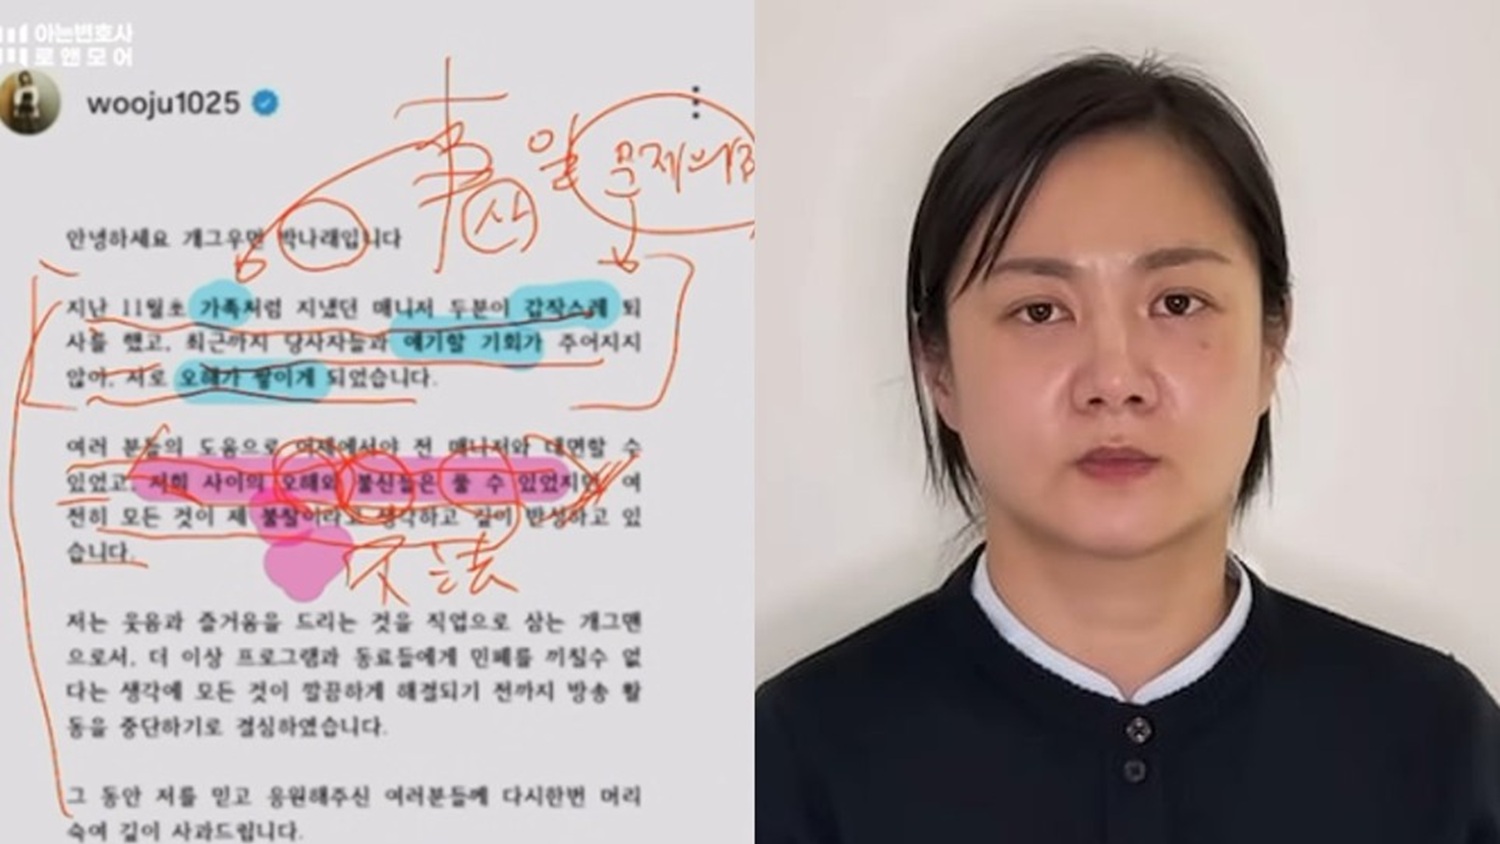 아는변호사
로앤모어
wooju1025
事 일 문제의
산
안녕하세요 개그우먼 박나래입니다
지난 11월초 가족처럼 지냈던 매니저 두분이 갑작스레 퇴
사를 했고, 최근까지 당사자들과 얘기할 기회가 주어지지
않아, 서로 오해가 쌓이게 되었습니다.
여러 분들의 도움으로 어제에서야 전 매니저와 대면할 수
있었고, 저희 사이의 오해와 불신들은 풀 수 있었지만, 여
전히 모든 것이 제 불찰이라고 생각하고 깊이 반성하고 있
습니다.
不法
저는 웃음과 즐거움을 드리는 것을 직업으로 삼는 개그맨
으로서, 더 이상 프로그램과 동료들에게 민폐를 끼칠수 없
다는 생각에 모든 것이 깔끔하게 해결되기 전까지 방송 활
동을 중단하기로 결심하였습니다.
그 동안 저를 믿고 응원해주신 여러분들께 다시한번 머리
숙여 깊이 사과드립니다.